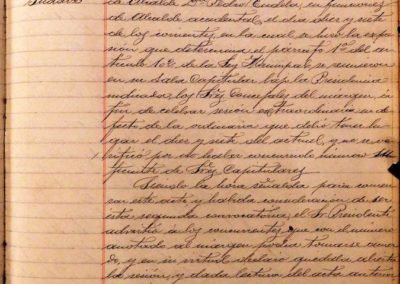 Gustavo
de Alcalde Dn. Pedro Cudela, en funciones
de Alcalde accidental, el dia diez y siete
de los corrientes, en la cual se hizo la expre
sión que determina el párrafo 1º del ar
tículo 10º de la Ley Municipal, se reunieron
en su Sala Capitular bajo la Presidencia
indicada, los Sres Concejales del márgen, á
fin de celebrar sesión extraordinaria en de
fecto de la ordinaria que debió tener lu
gar el diez y siete del actual, y no se ve
rificó por no haber concurrido número
ficiente de Sres Capitulares.
Siendo la hora señalada para comen
zar este acto y habida consideracion de ser
esta segunda convocatoria, el Sr Presidente
advirtió á los concurrentes que con el número
anotado al márgen podia tomarse acuer
do, y en su virtud declaró quedaba abierta
la sesión, y dada lectura del acta anterior